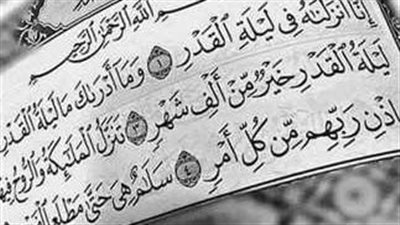 بِسْمِ ٱللَّهِ ٱلرَّحْمَٰنِ ٱلرَّحِيمِ
إِنَّآ أَنزَلْنَٰهُ فِى لَيْلَةِ ٱلْقَدْرِ ١ وَمَآ أَدْرَىٰكَ مَا لَيْلَةُ ٱلْقَدْرِ
لَيْلَةُ ٱلْقَدْرِ خَيْرٌ مِّنْ أَلْفِ شَهْرٍ ٣ تَنَزَّلُ ٱلْمَلَٰٓئِكَةُ وَٱلرُّوحُ فِيهَا
إِذْنِ رَبِّهِم مِّن كُلِّ أَمْرٍ ٤ سَلَٰمٌ هِىَ حَتَّىٰ مَطْلَعِ